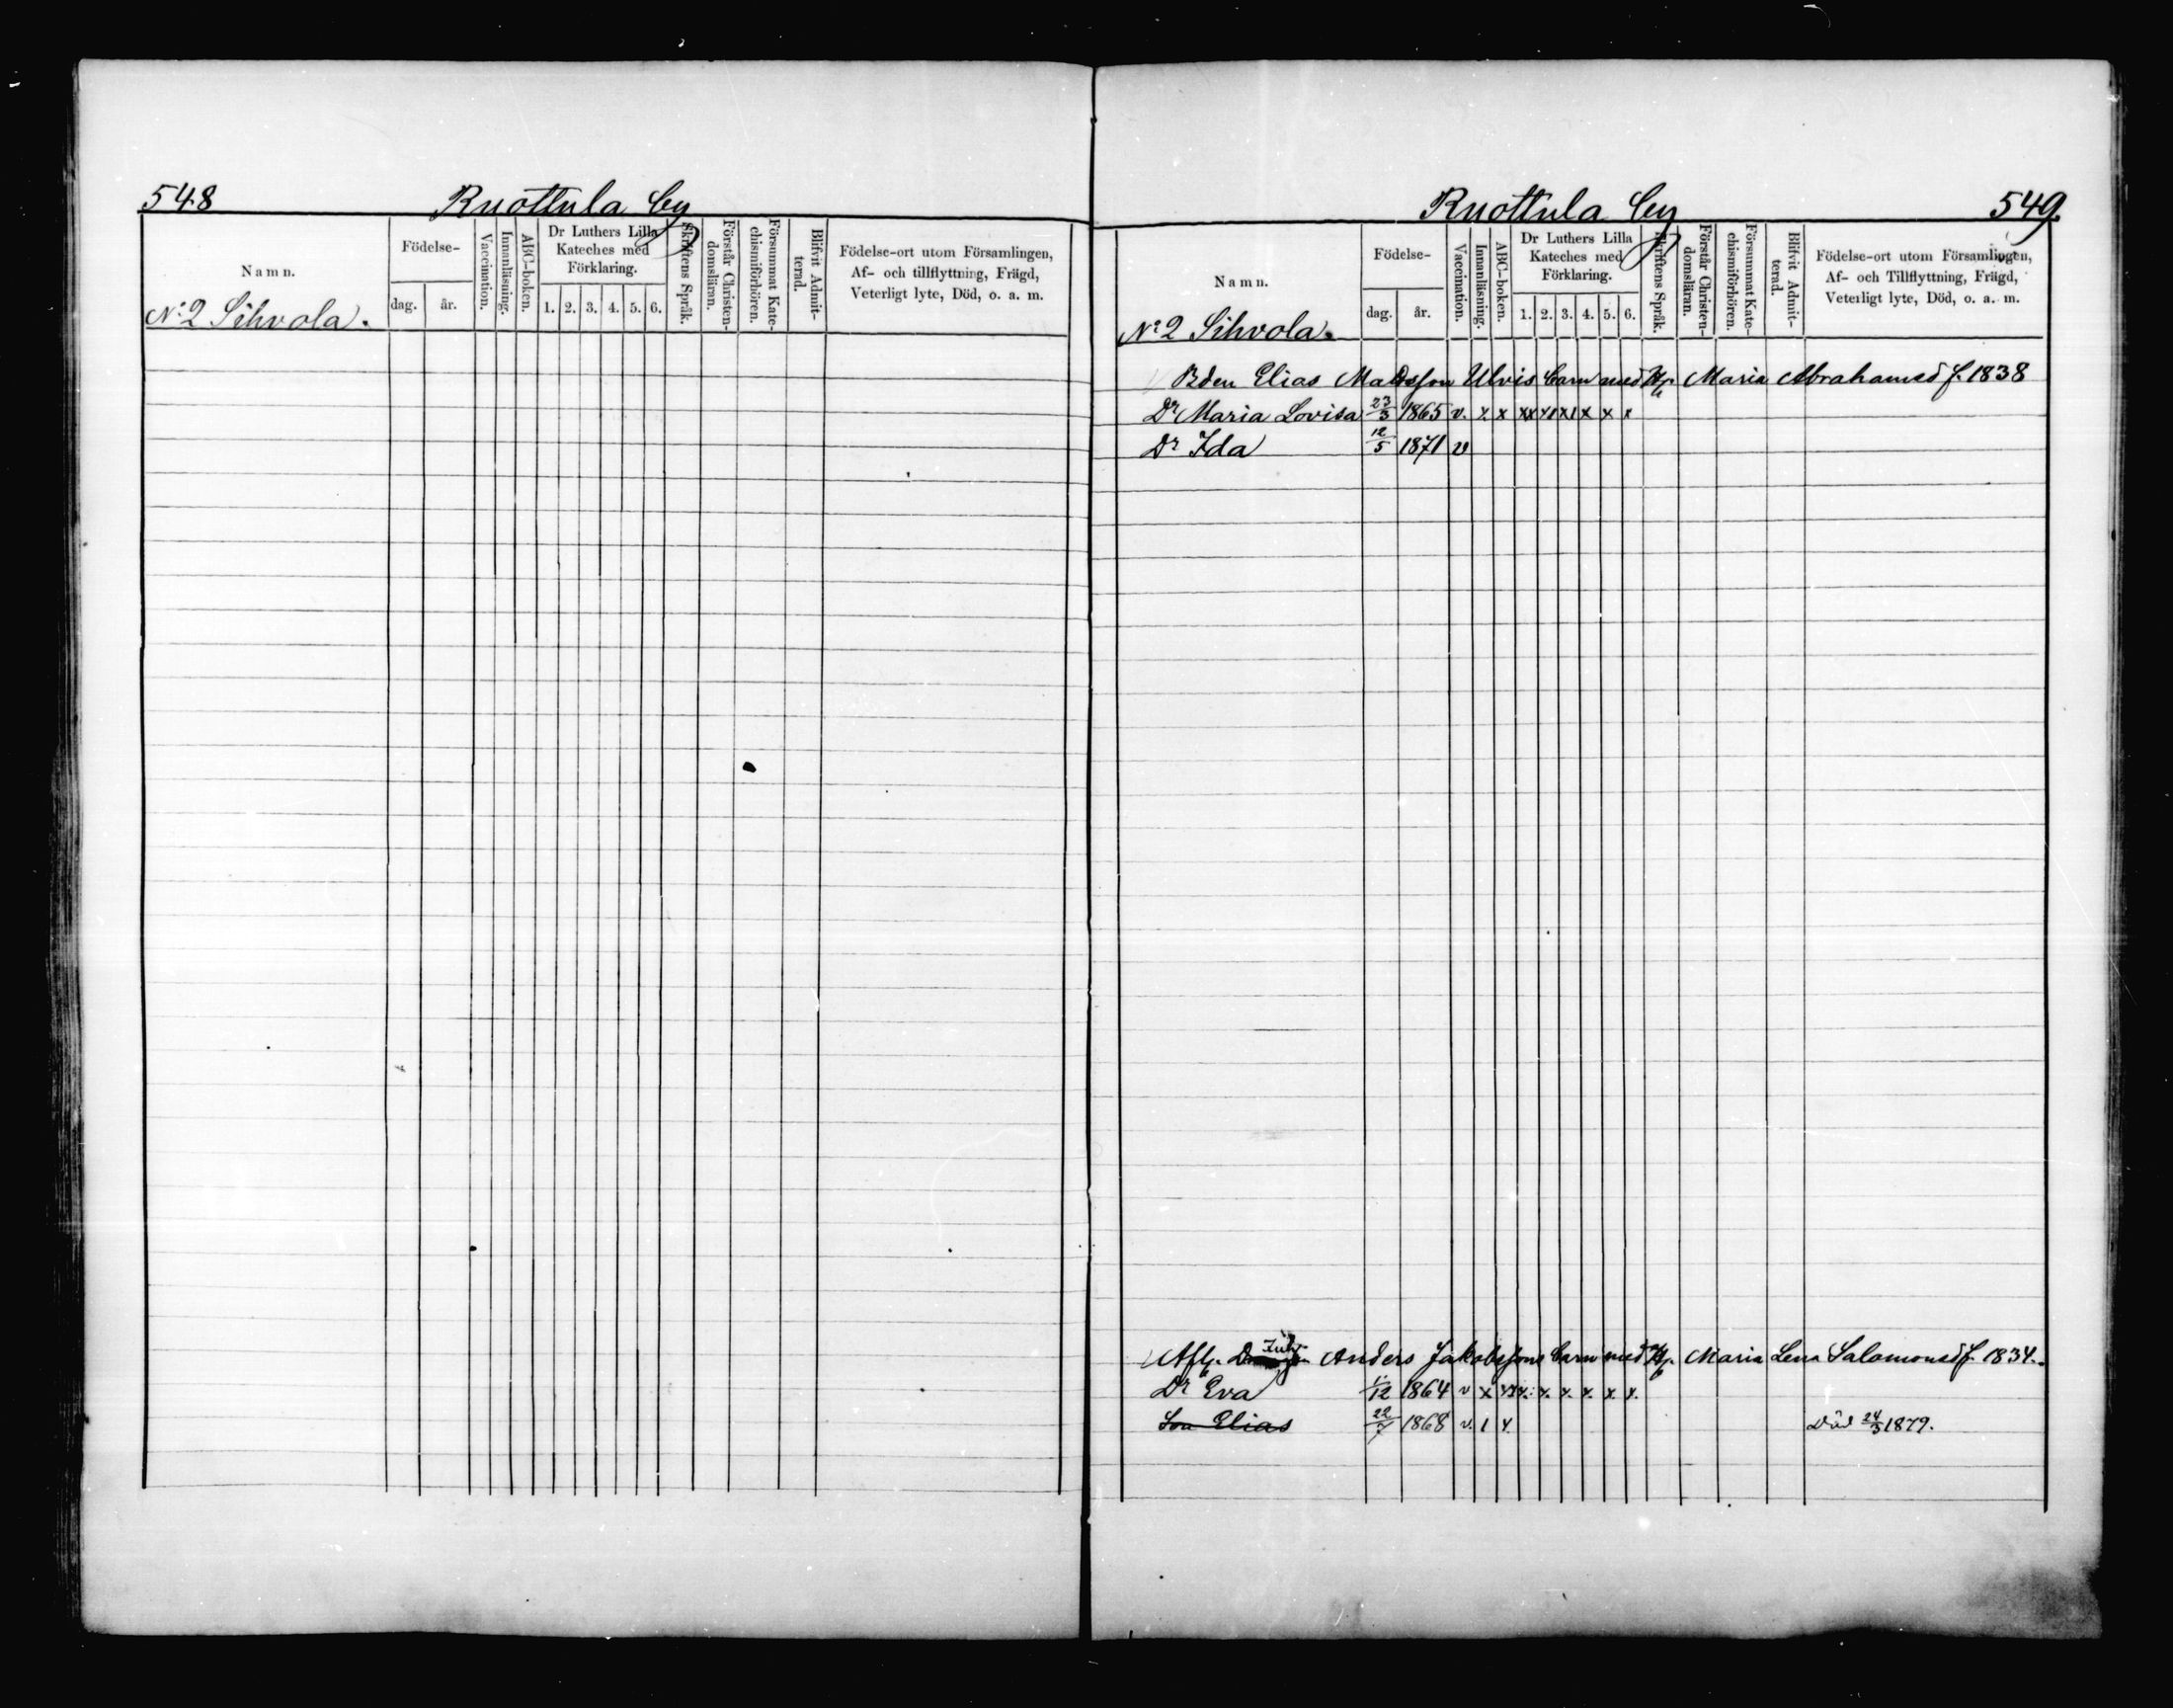 548
Ruottula by
Namn.
Födelse-
dag.
år.
Vaccination.
Innanläsning.
ABC-boken.
Dr Luthers Lilla
Kateches med
Förklaring.
1. 2. 3. 4. 5. 6.
Skriftens Språk.
Förstår Christen-
domsläran.
Försummat Kate-
chismiförhören.
Blifvit Admit-
terad.
Födelse-ort utom Församlingen,
Af- och tillflyttning, Frägd,
Veterligt lyte, Död, o. a. m.
No 2 Sihvola.
Ruottula by
549.
Namn.
Födelse-
dag.
år.
Vaccination.
Innanläsning.
ABC-boken.
Dr Luthers Lilla
Kateches med
Förklaring.
1. 2. 3. 4. 5. 6.
Skriftens Språk.
Förstår Christen-
domsläran.
Försummat Kate-
chismiförhören.
Blifvit Admit-
terad.
Födelse-ort utom Församlingen,
Af- och Tillflyttning, Frägd,
Veterligt lyte, Död, o. a. m.
No 2 Sihvola.
Bden Elias Matsson Ulvis barn med Hu Maria Abrahamsd f. 1838
Dr Maria Lovisa 23/3 1865 v. x x xx x1 x1 x x x
Dr Ida 12/5 1871 v
Afl. Anders Jakobssons barn med Hu Maria Lena Salomonsd f. 1834.
Dr Eva 1/12 1864 v x x x x. x. x. x x.
Son Elias 22/7 1868 v. 1 x Död 24/3 1879.